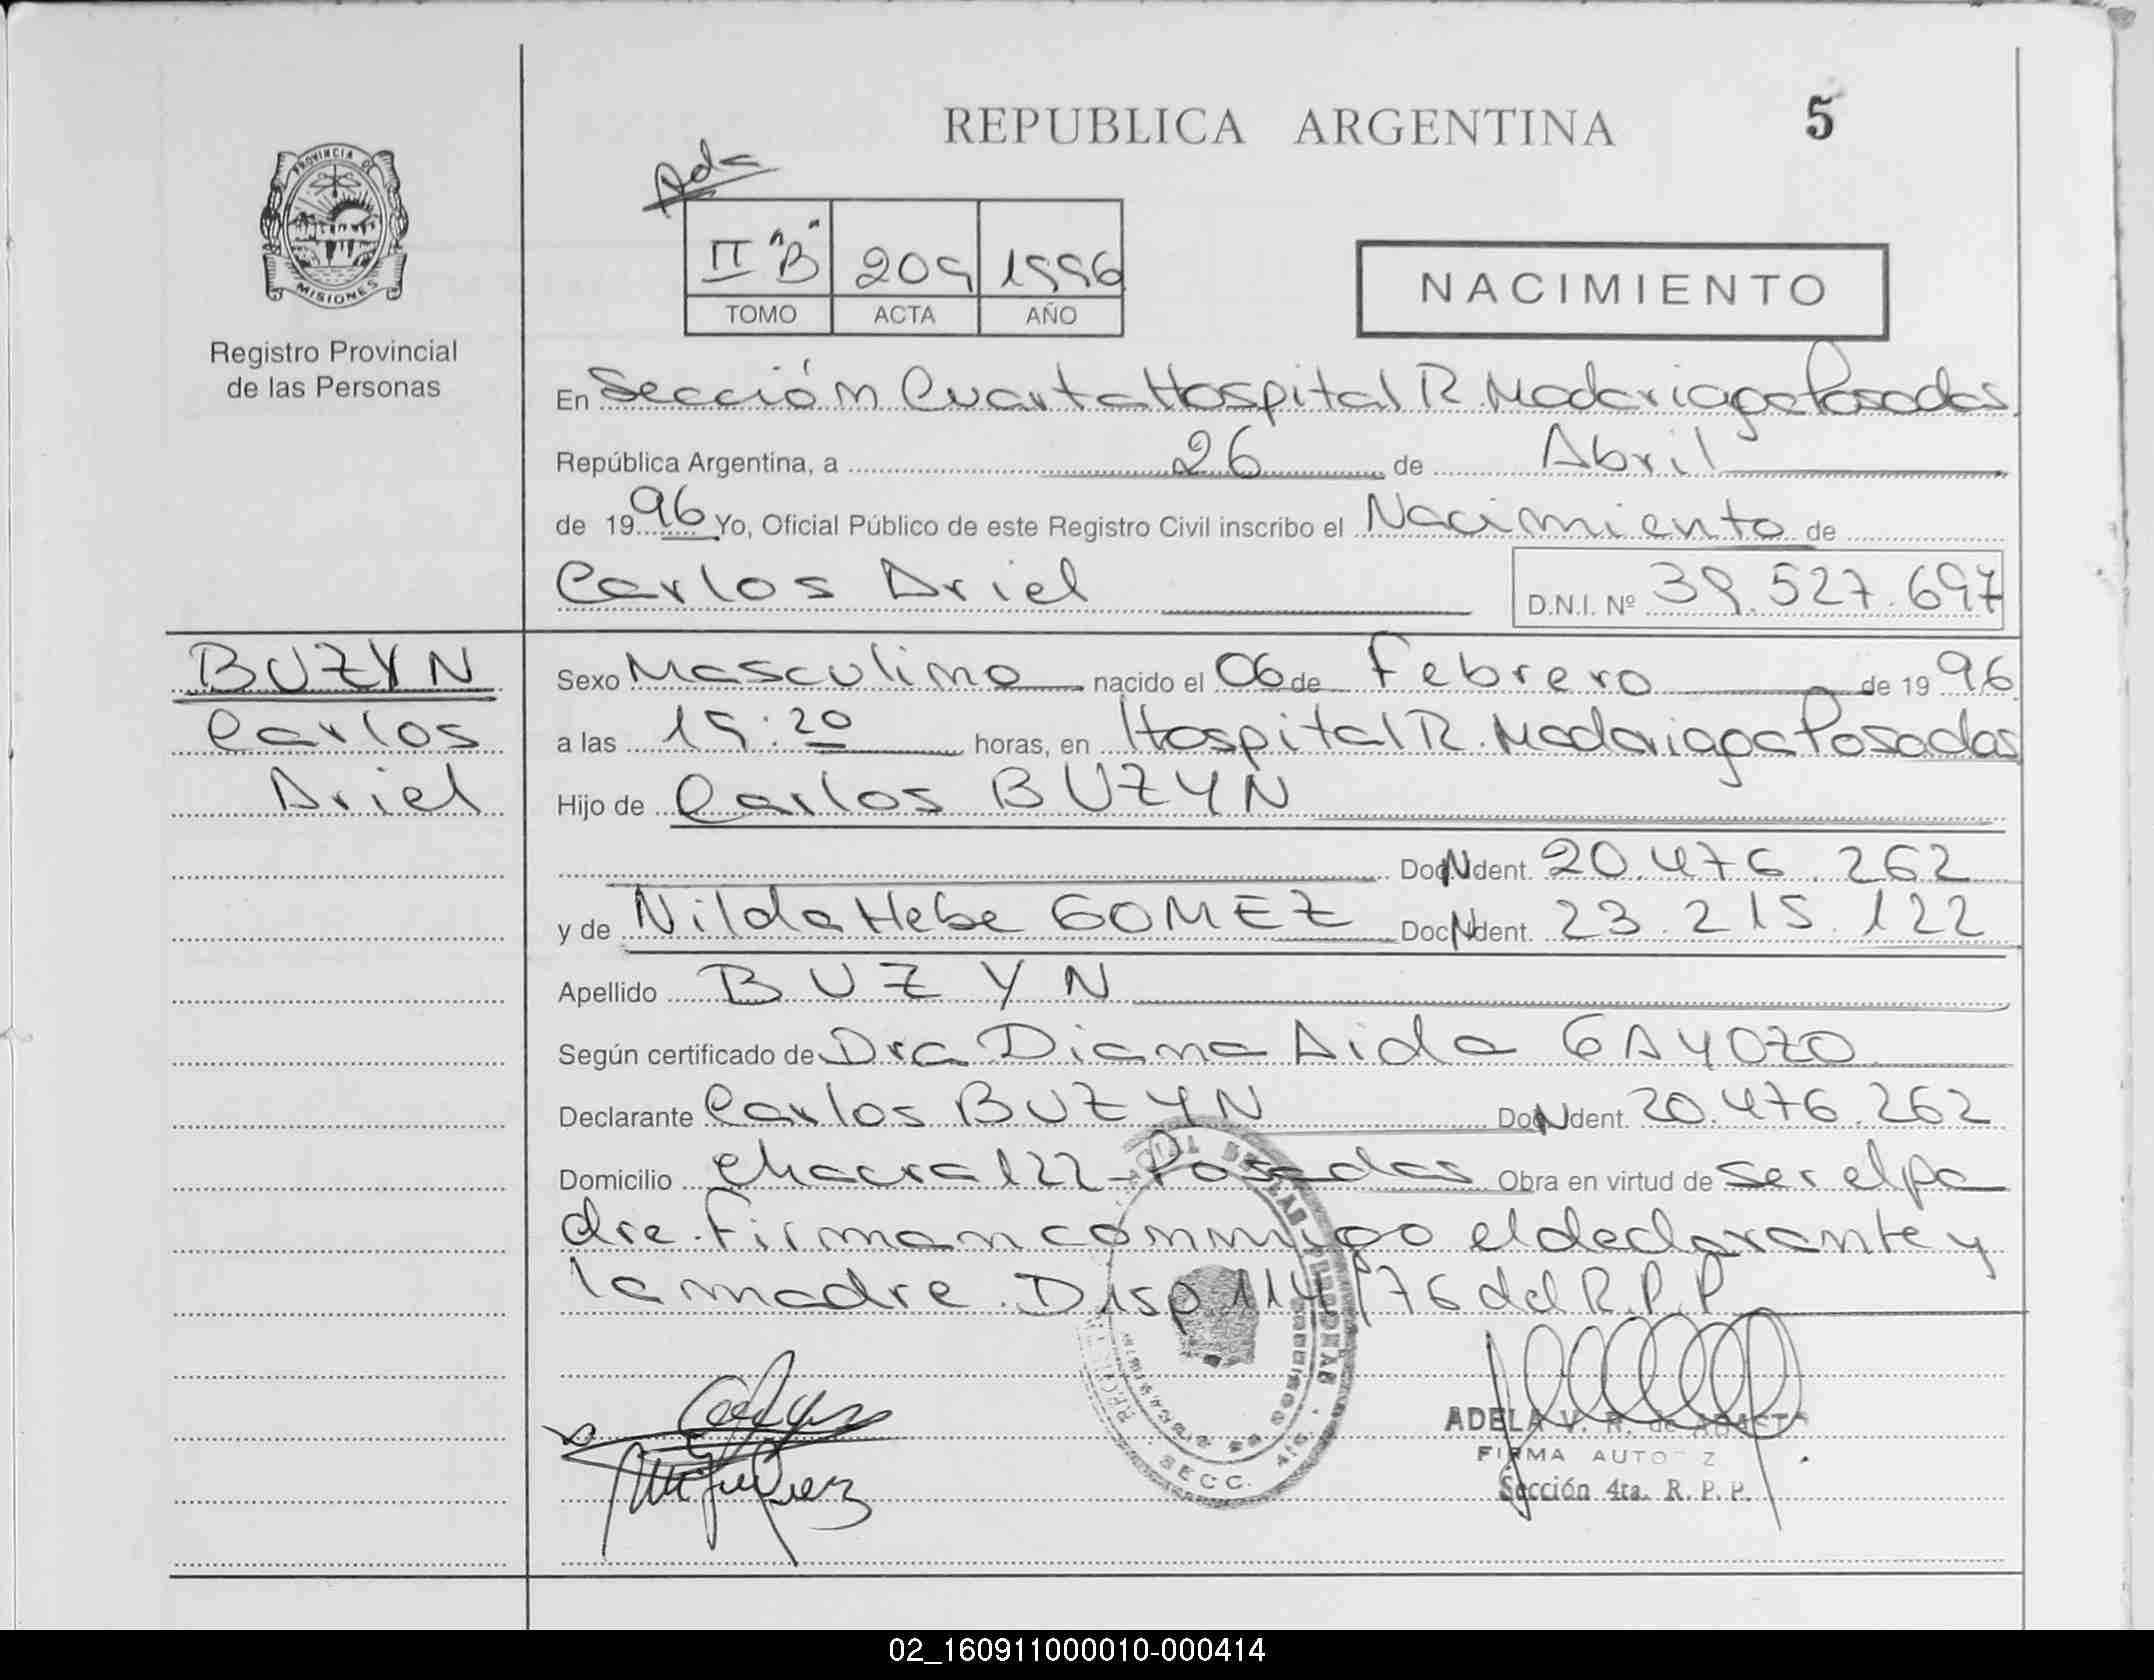 REPUBLICA ARGENTINA
5
PROVINCIA DE
MISIONES
Registro Provincial
de las Personas
II "B" 209 1996
TOMO ACTA AÑO
NACIMIENTO
En Sección Cuarta Hospital R. Madariaga Posadas
República Argentina, a 26 de Abril
de 1996 Yo, Oficial Público de este Registro Civil inscribo el Nacimiento de
Carlos Ariel D.N.I. Nº 39.527.697
BUZYN
Carlos
Ariel
Sexo Masculino nacido el 06 de Febrero de 1996
a las 15:20 horas, en Hospital R. Madariaga Posadas
Hijo de Carlos BUZYN
Doc N Ident. 20.476.262
y de Nilda Hebe GOMEZ Doc N Ident. 23.215.122
Apellido BUZYN
Según certificado de Dra Diana Aida GAYOZO
Declarante Carlos BUZYN Doc N Ident. 20.476.262
Domicilio chacra 122 - Posadas Obra en virtud de ser el pa
dre. Firman conmigo el declarante y
la madre. Disp 114/76 del R.P.P
ADELA V. R. de
FIRMA
Sección 4ta. R. P. P.
SECC. 4ta.
02_160911000010-000414